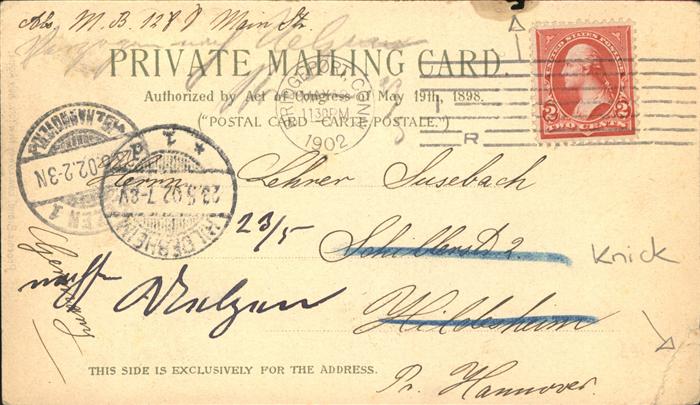 Abs. M. B. 1287 Main Str.
PRIVATE MAILING CARD.
Authorized by Act of Congress of May 19th, 1898.
("POSTAL CARD-CARTE POSTALE.")
BRIDGEPORT, CONN.
130PM
1902
R
UNITED STATES POSTAGE
2 2
TWO CENTS
2-3N
HILDESHEIM
23.5.02.7-8V
* 1
Herrn Lehrer Susebach
23/5
Schillerstr 2
Knick
nach Uelzen
Hildesheim
Germany
THIS SIDE IS EXCLUSIVELY FOR THE ADDRESS.
Pr. Hannover.